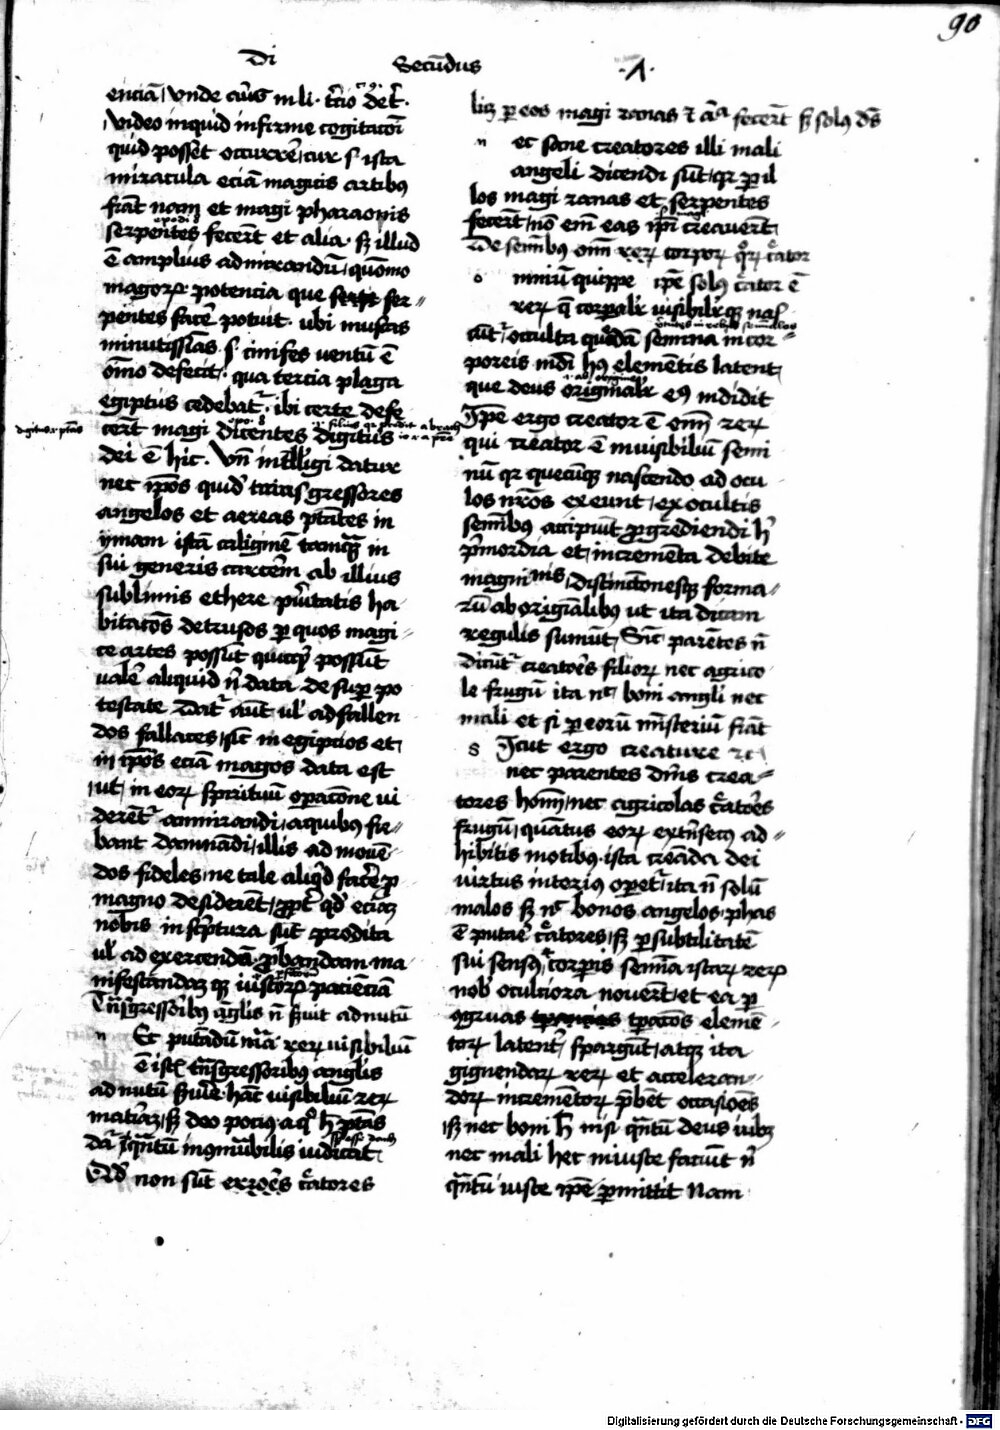 90
Di Secundus .A.
enciā vnde aug9 in li. tercio de tri.
video inquid infirme cogitacōi
quid posset occurrere cur s. ista
miracula eciā magicis artibus
fiāt nam et magi pharaonis
serpentes fecerūt et alia. sʒ illud
ē amplius admirandū quōmo
magorꝝ potencia que ser
pentes facē potuit. ubi muscas
minutissīas .s. cinifes ventū ē
oīno defecit. qua tercia plaga
egiptus cedebat. ibi certe defe
cerūt magi dicentes digitus
dei ē hic. Vn̄ intelligi datur
nec ip̄os quid trāsgressores
angelos et aereas ptātes in
ymam istā caliginē tamquā in
sui generis carcerē ab illius
sublimis ethere puritatis ha
bitacōe detrusos per quos magi
ce artes possūt quicquid possūt
valē aliquid nisi data desuper po
testate Dat aūt vel ad fallen
dos fallaces sic in egipcios et
in ip̄os eciā magos data est
ut in eorū spirituū operacōne vi
derent amirandi a quibus fie
bant damnādi illis ad monē
dos fideles ne tale aliquid facere pro
magno desiderent propter quod eciam
nobis in scriptura sūt prodita
vel ad exercendā probandam ma
nifestandaqʒ iustorū pacienciā
Trāsgressoribus āglis nō seruit ad nutū
n Et putādū materiā rerū visibiliū
ē istis trāsgressoribus anglis
ad nutū seruire hāc visibiliū rerū
materiaʒ sʒ deo pocius a quo hec ptās
dat inquātū incōmutabilis iudicat
Qd non sūt errores creatores
licʒ per eos magi ranas et alia fecerūt sʒ solus ds
n ec sane creatores illi mali
angeli dicendi sūt quia per il
los magi ranas et serpentes
fecerūt nō enī eas ipsi creauerūt
De seminibus omniū rerū corporū quorum creator
o mniū quippe ip̄e solus creator ē
rerū que corporalr visibilrqʒ nas
cūtr occulta quedā semina in cor
poreis mūdi hui9 elementis latent
que deus originalr eis indidit
Ip̄e ergo creator ē omniū rerū
qui creator ē inuisibiliū semi
nū quia quecūqʒ nascendo ad ocu
los nr̄os exeunt ex ocultis
seminibus accipiūt progrediendi hec
primordia et incremēta debite
magnitudinis distinctionesqʒ forma
rū ab originalibus ut ita dicam
regulis sumūt Sic parētes nō
dicūtr creatores filiorū nec agrico
le frugū ita nec boni angli nec
mali et si per eorū misteriū fiāt
s Icut ergo creature
nec parentes dicimus crea
tores hominū nec agricolas creatores
frugū quāuis eorū extrinsecus ad
hibitis motibus ista creāda dei
virtus interius operet ita nō solū
malos sʒ nec bonos angelos phas
ē putare creatores sʒ per subtilitatē
sui sensus et corporis semina istarū rerū
nobis ocultiora nouerūt et ea per
congruas tēperacōes elemē
torū latenter spargūt atqʒ ita
gignendarū rerū et acceleran
dorū incrementorū prebent occasiōes
sʒ nec boni hec nisi quantū deus iubʒ
nec mali hec iniuste faciūt nisi
quantū iuste ip̄e permittit Nam
Digitalisierung gefördert durch die Deutsche Forschungsgemeinschaft - DFG